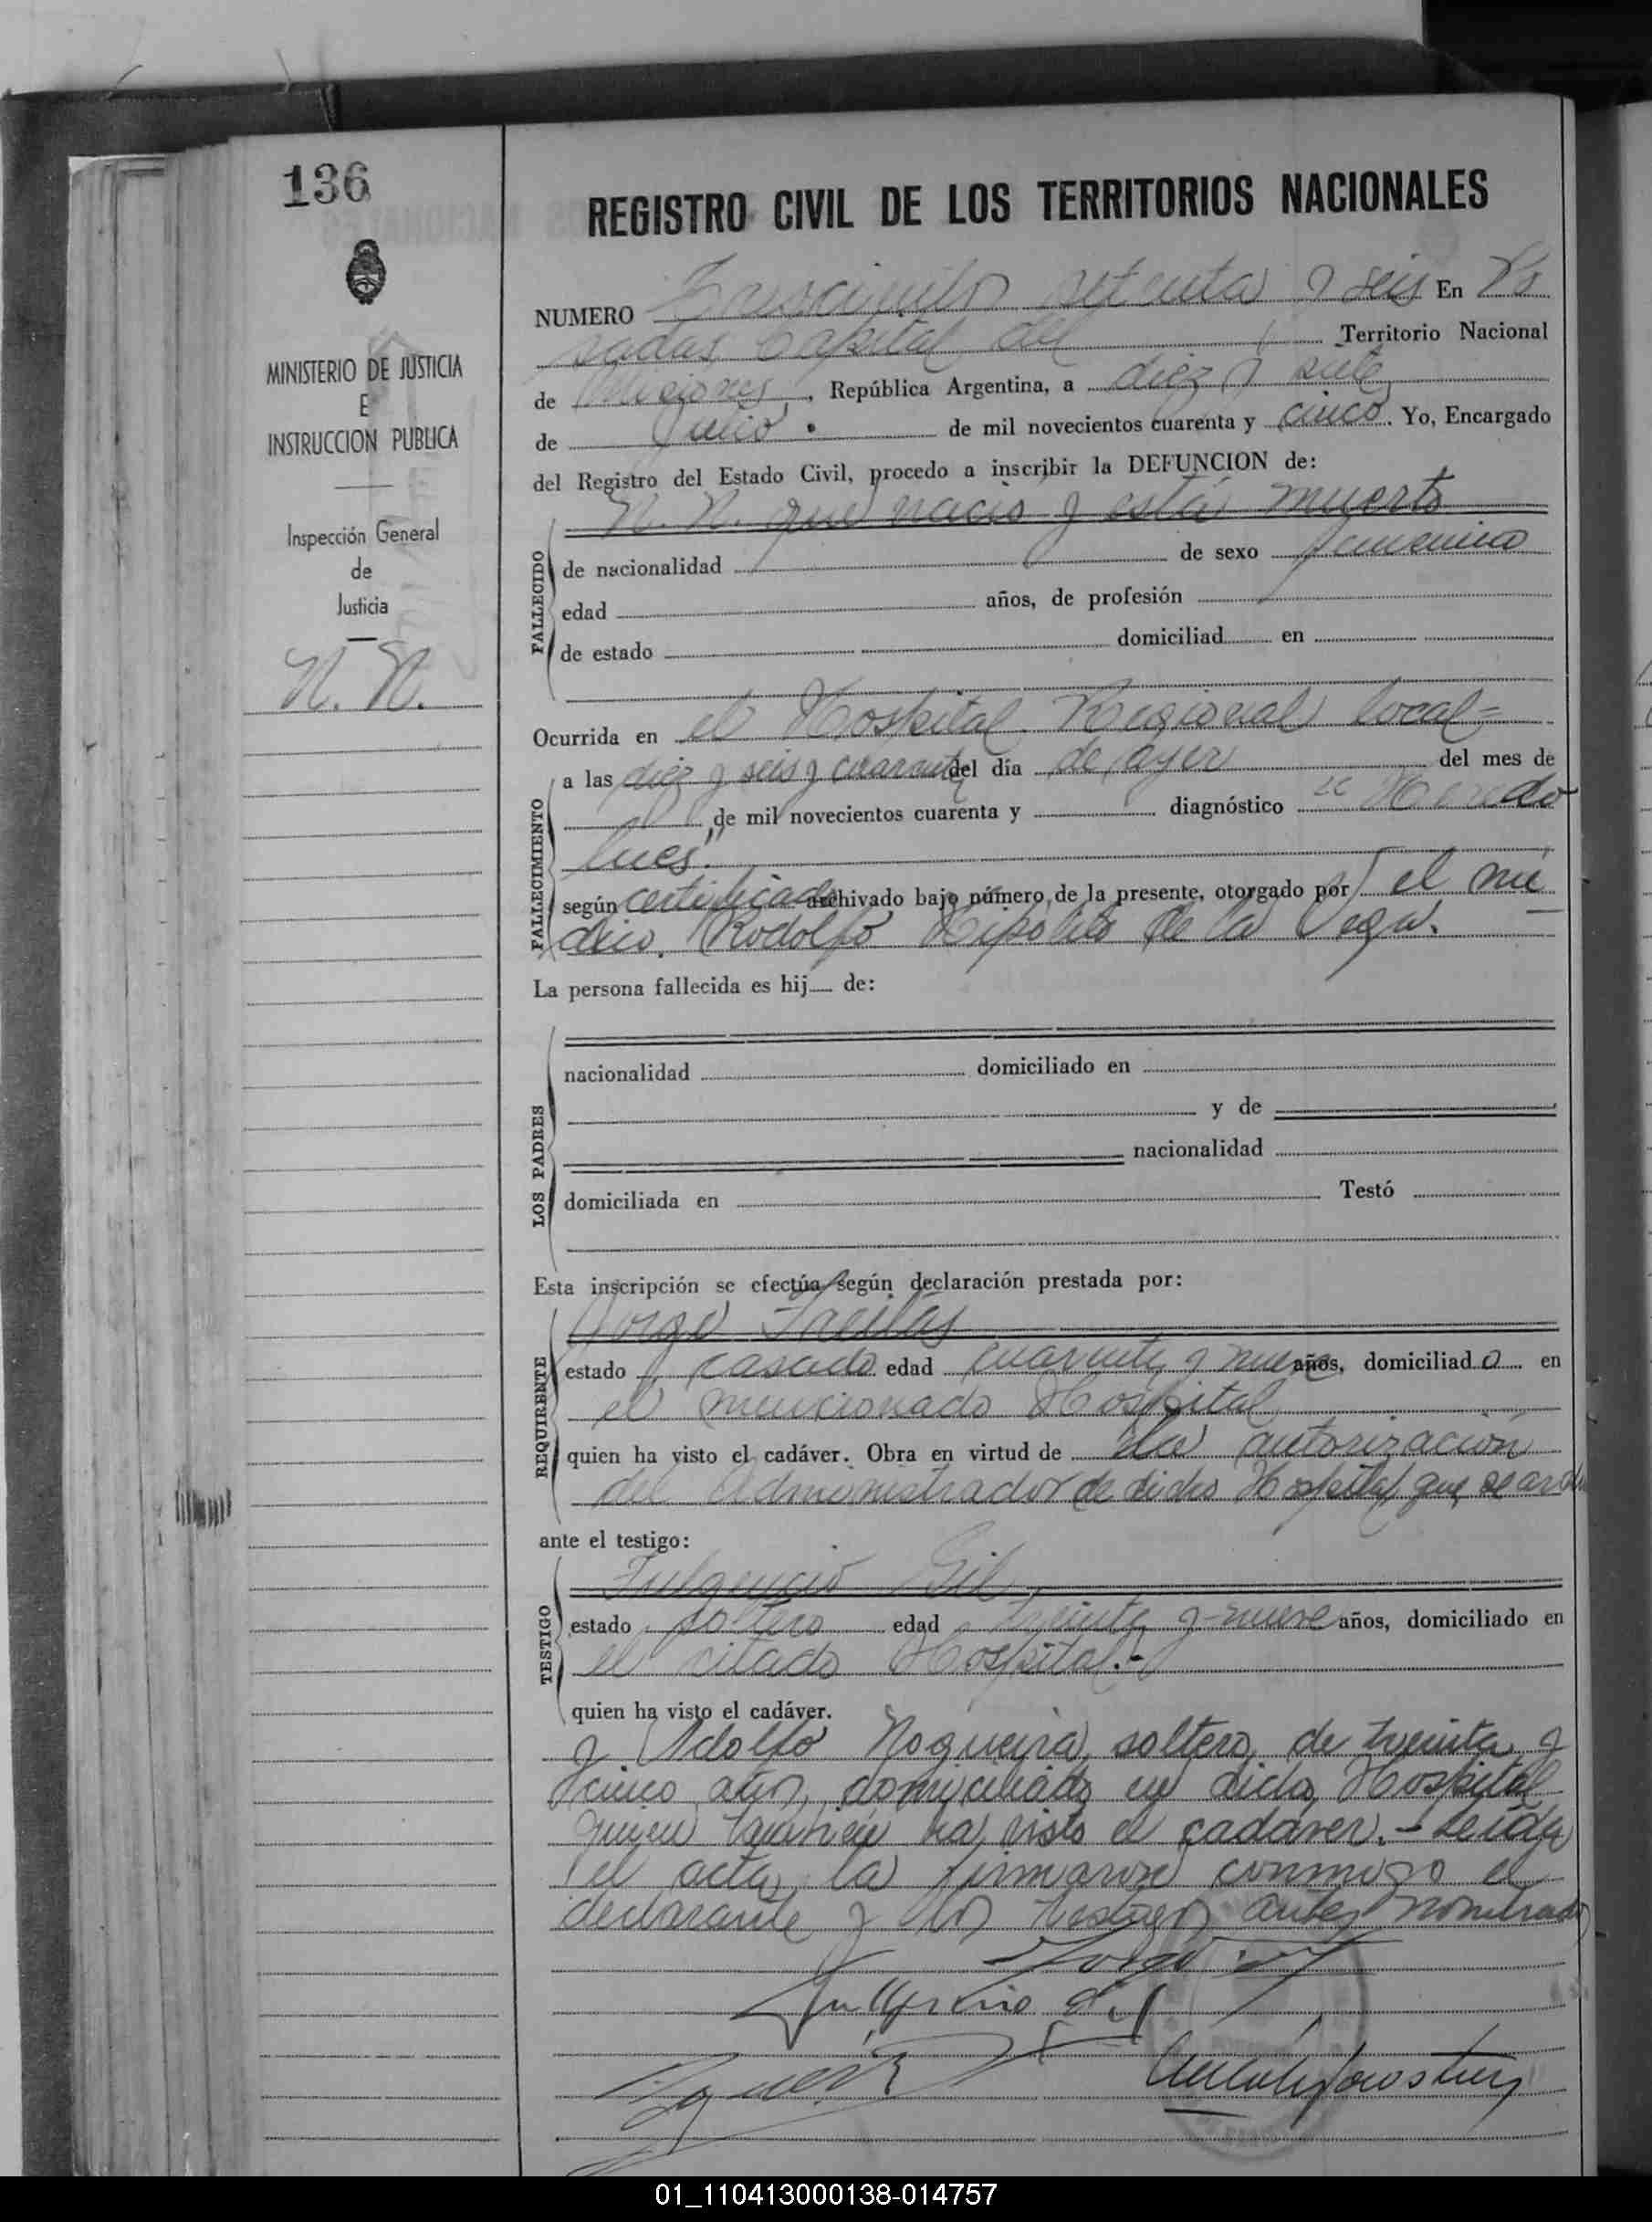 136
MINISTERIO DE JUSTICIA
E
INSTRUCCION PUBLICA
Inspección General
de
Justicia
N. N.
REGISTRO CIVIL DE LOS TERRITORIOS NACIONALES
NUMERO Trescientos setenta y seis En Po
sadas Capital del Territorio Nacional
de Misiones, República Argentina, a diez y siete
de Junio de mil novecientos cuarenta y cinco. Yo, Encargado
del Registro del Estado Civil, procedo a inscribir la DEFUNCION de:
N. N. que nació y está muerto
FALLECIDO
de nacionalidad de sexo femenino
edad años, de profesión
de estado domiciliad en
Ocurrida en el Hospital Regional local=
FALLECIMIENTO
a las diez y seis y cuarenta del día de ayer del mes de
de mil novecientos cuarenta y diagnóstico "Heredo
lues".
según certificado archivado bajo número de la presente, otorgado por el mé
dico, Rodolfo Hipólito de la Vega.
La persona fallecida es hij de:
LOS PADRES
nacionalidad domiciliado en
y de
nacionalidad
domiciliada en Testó
Esta inscripción se efectúa según declaración prestada por:
REQUIRENTE
Jorge
estado casado edad cuarenta y nueve años, domiciliado en
el mencionado Hospital
quien ha visto el cadáver. Obra en virtud de la autorización
del Administrador de dicho Hospital que se
ante el testigo:
TESTIGO
Fulgencio Gil
estado soltero edad treinta y nueve años, domiciliado en
el citado Hospital.-
quien ha visto el cadáver.
y Adolfo Nogueira, soltero, de treinta y
cinco años, domiciliado en dicho Hospital
quien también ha visto el cadáver.- Leída
el acta, la firmaron conmigo el
declarante y los testigos antes nombrados
Jorge
Fulgencio Gil
01_110413000138-014757